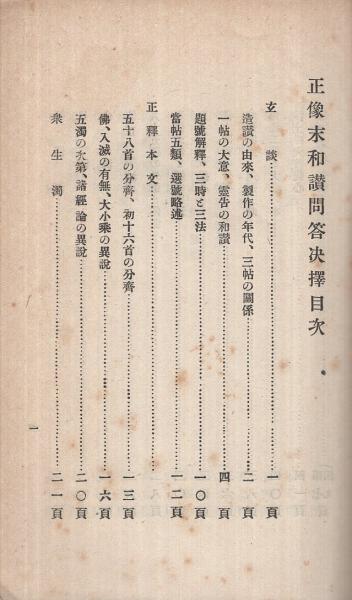 正像末和讃問答决擇目次
玄談……………一頁
造讃の由來、製作の年代、三帖の關係……………二頁
一帖の大意、靈告の和讃……………四頁
題號解釋、三時と三法……………一〇頁
當帖五類、選號略述……………一二頁
正釋本文
五十八首の分齊、初十六首の分齊……………一三頁
佛、入滅の有無、大小乘の異説……………一六頁
五濁の次第、諸經論の異説……………二〇頁
衆生濁……………二一頁
一